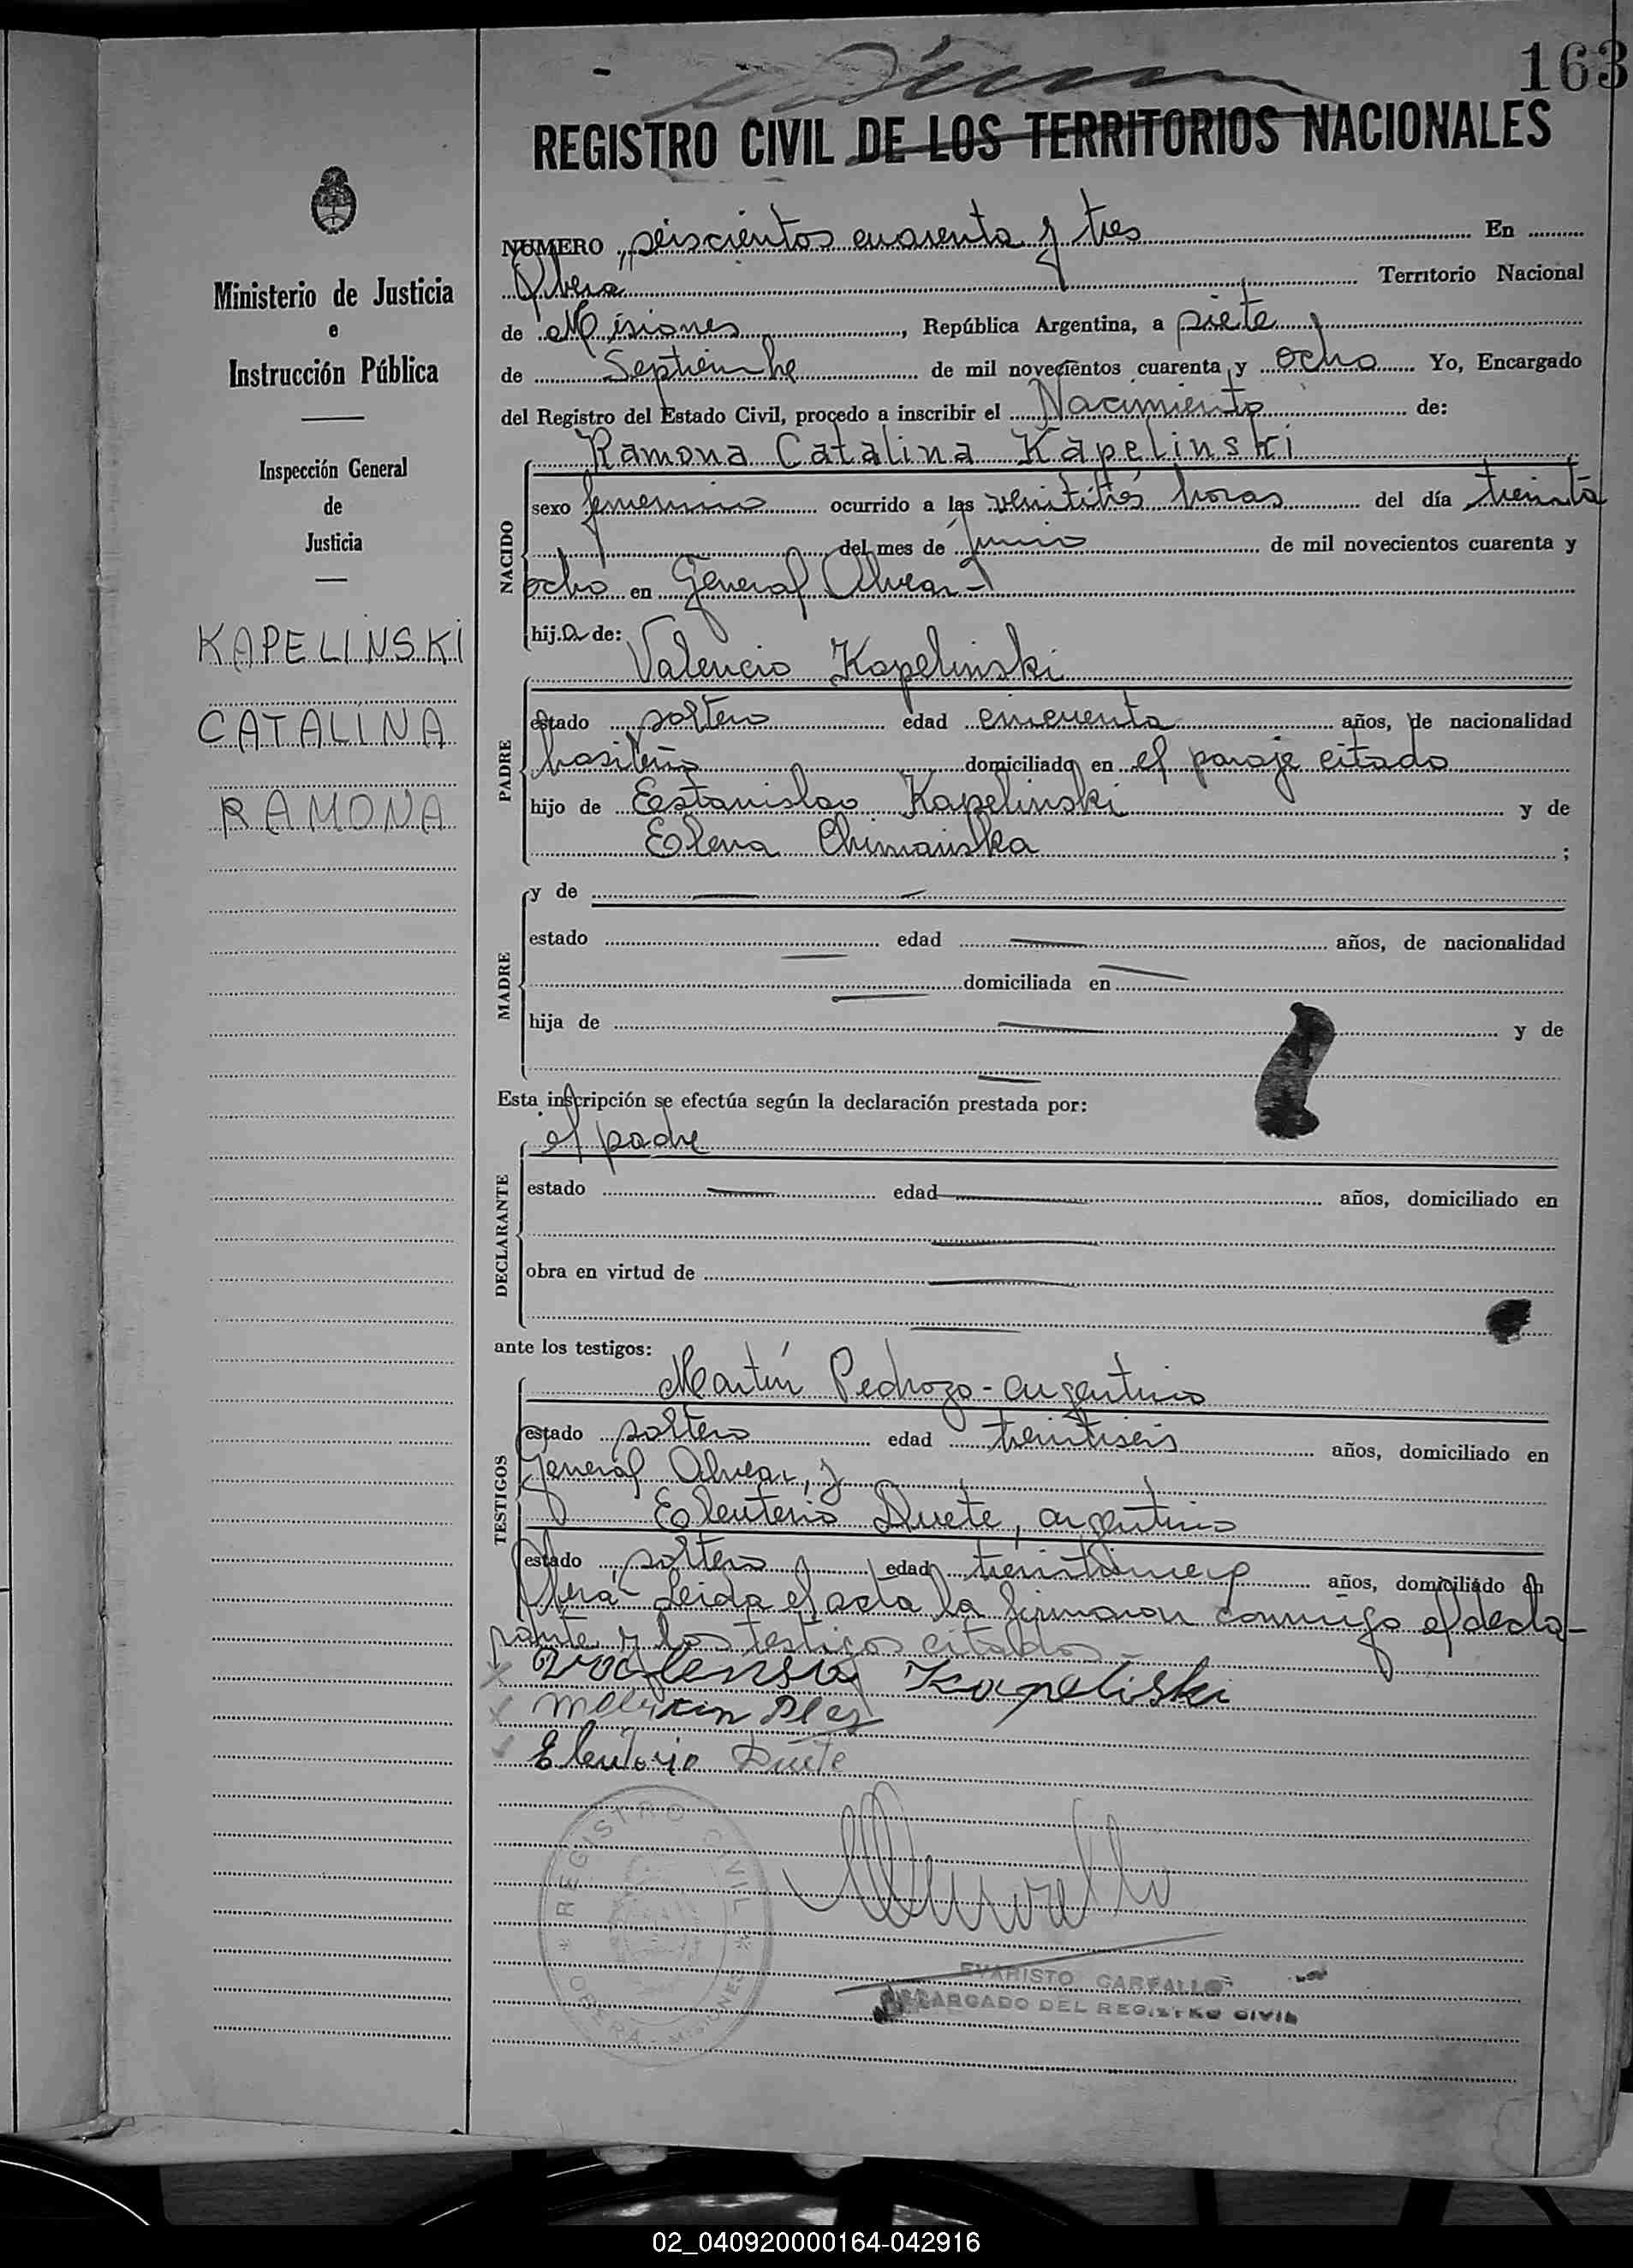 163
REGISTRO CIVIL DE LOS TERRITORIOS NACIONALES
Ministerio de Justicia
e
Instrucción Pública
Inspección General
de
Justicia
KAPELINSKI
CATALINA
RAMONA
NUMERO seiscientos cuarenta y tres En
Oberá Territorio Nacional
de Misiones, República Argentina, a siete
de Septiembre de mil novecientos cuarenta y ocho Yo, Encargado
del Registro del Estado Civil, procedo a inscribir el Nacimiento de:
NACIDO
Ramona Catalina Kapelinski
sexo femenino ocurrido a las veintitrés horas del día treinta
del mes de junio de mil novecientos cuarenta y
ocho en General Alvear
hija de:
PADRE
Valencio Kapelinski
estado soltero edad cincuenta años, de nacionalidad
brasileño domiciliado en el paraje citado
hijo de Estanislao Kapelinski y de
Elena Chimanska;
MADRE
y de
estado edad años, de nacionalidad
domiciliada en
hija de y de
Esta inscripción se efectúa según la declaración prestada por:
DECLARANTE
el padre
estado edad años, domiciliado en
obra en virtud de
ante los testigos:
TESTIGOS
Martín Pedrozo - argentino
estado soltero edad treintiseis años, domiciliado en
General Alvear, y
Eleuterio Duete, argentino
estado soltero edad años, domiciliado en
Oberá - Leida el acta la firmaron conmigo el decla-
rante y los testigos citados
Kapeliski
Eleutorio Duete
REGISTRO CIVIL
OBERA - MISIONES
EVARISTO CARFALLO
ENCARGADO DEL REGISTRO CIVIL
02_040920000164-042916